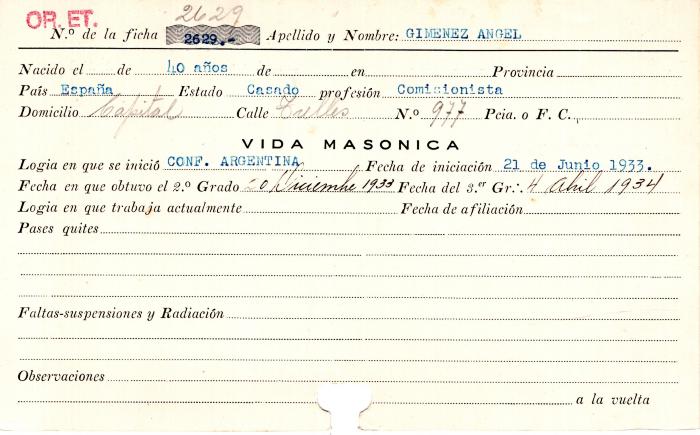 OR. ET.
2629
N.º de la ficha 2629.- Apellido y Nombre: GIMENEZ ANGEL
Nacido el de 40 años de en Provincia
País España Estado Casado profesión Comisionista
Domicilio Capital Calle Trelles N.º 977 Pcia. o F. C.
VIDA MASONICA
Logia en que se inició CONF. ARGENTINA Fecha de iniciación 21 de Junio 1933.
Fecha en que obtuvo el 2.º Grado 20 Diciembre 1933 Fecha del 3.er Gr.·. 4 Abril 1934
Logia en que trabaja actualmente Fecha de afiliación
Pases quites
Faltas-suspensiones y Radiación
Observaciones
a la vuelta